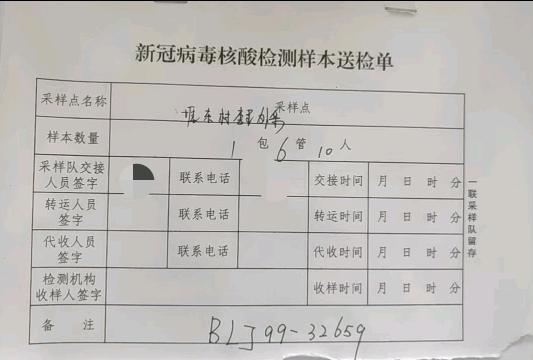 新冠病毒核酸检测样本送检单
采样点名称 采样点
样本数量 1 包 6 管 10 人
采样队交接人员签字 联系电话 交接时间 月 日 时 分
转运人员签字 联系电话 转运时间 月 日 时 分
代收人员签字 联系电话 代收时间 月 日 时 分
检测机构收样人签字 收样时间 月 日 时 分
备 注 BLJ99-32659
一联采样队留存